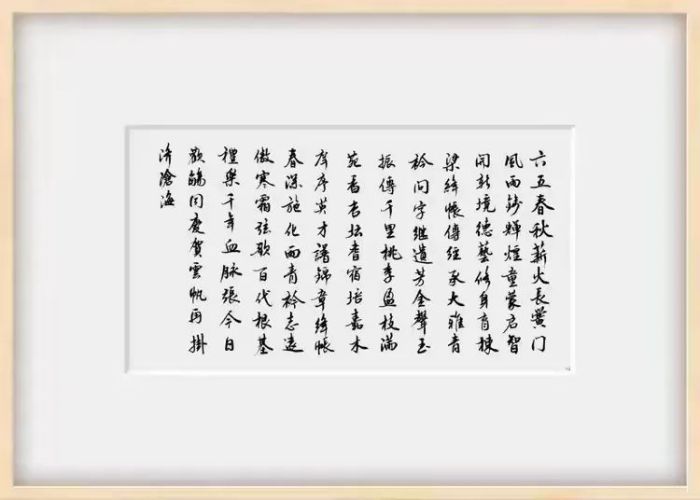 六五春秋薪火長黌门
風雨鑄輝煌童蒙啟智
開新境德藝修身育棟
梁絳帳傳經承大雅青
衿问字继遗芳金聲玉
振傳千里桃李盈枝滿
苑香杏坛耆宿培嘉木
庠序英才譜錦章絳帳
春深施化雨青衿志遠
傲寒霜弦歌百代根基
禮樂千年血脉張今日
歡觴同慶賀雲帆再掛
济滄海